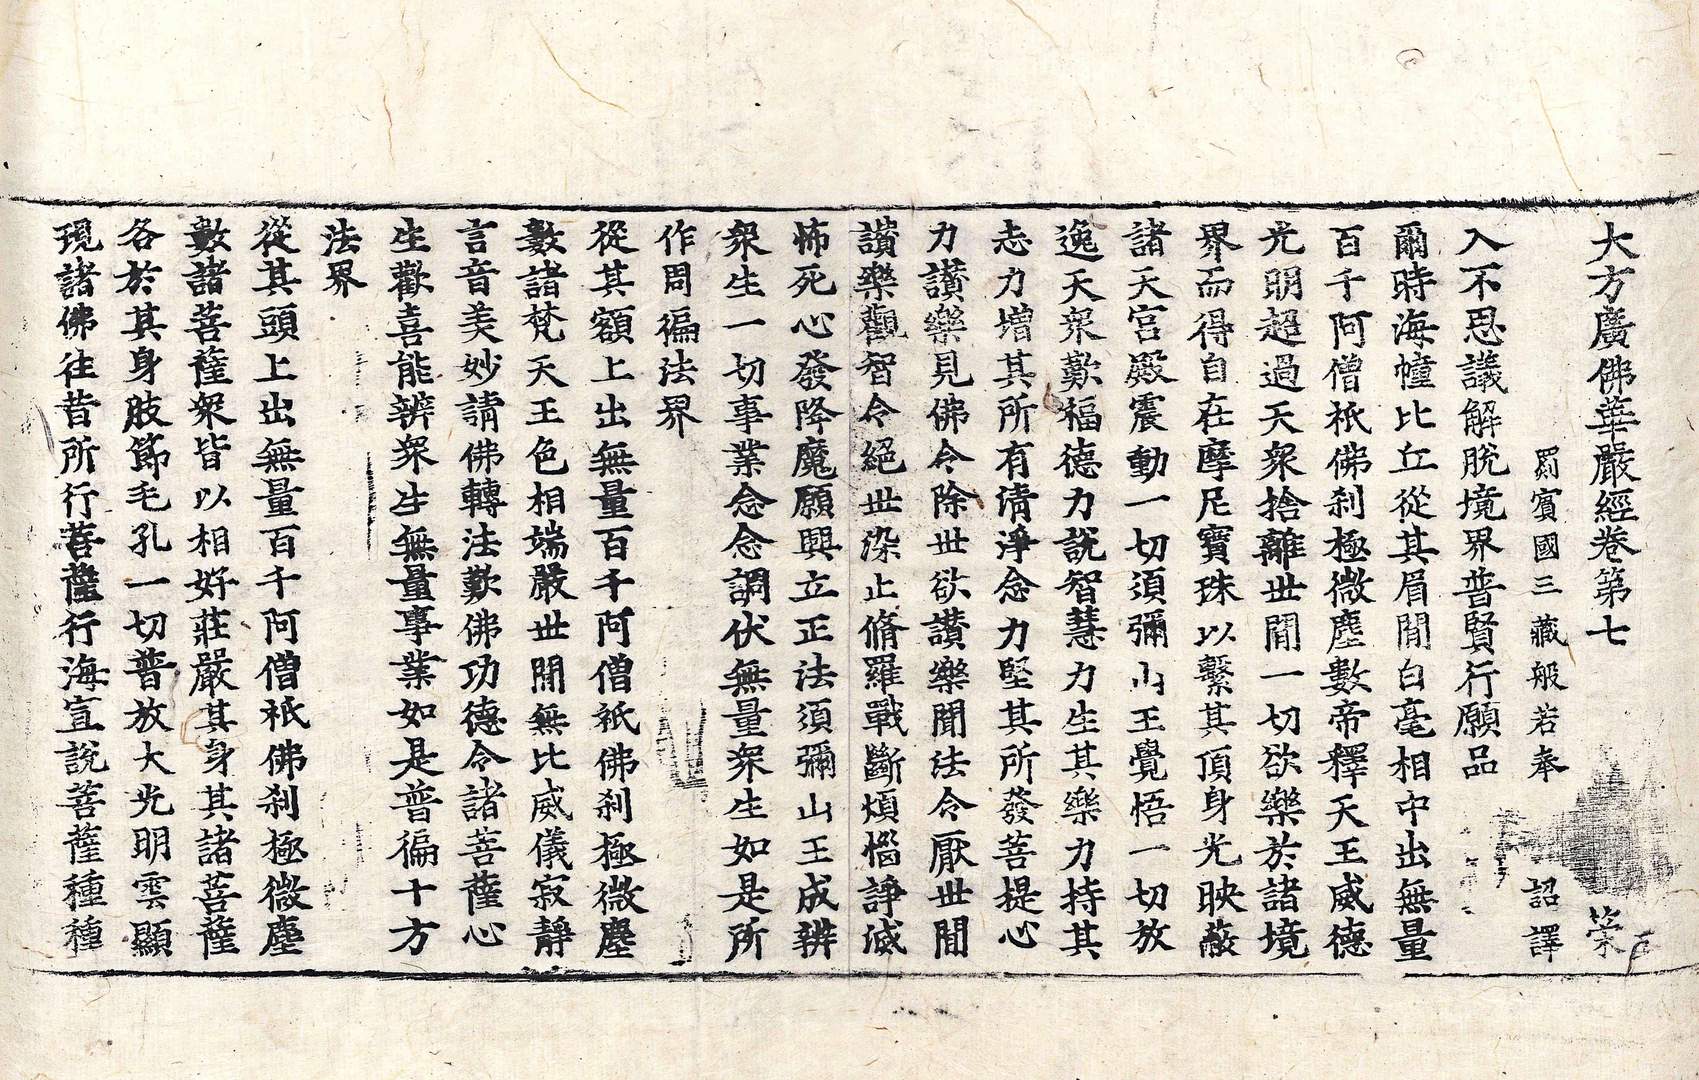 大方廣佛華嚴經卷第七 榮
罽賓國三藏般若奉 詔譯
入不思議解脫境界普賢行願品
爾時海幢比丘從其眉間白毫相中出無量
百千阿僧祇佛刹極微塵數帝釋天王威德
光明超過天衆捨離世間一切欲樂於諸境
界而得自在摩尼寶珠以繫其頂身光映蔽
諸天宮殿震動一切須彌山王覺悟一切放
逸天衆歎福德力說智慧力生其樂力持其
志力增其所有清淨念力堅其所發菩提心
力讃樂見佛令除世欲讃樂聞法令厭世間
讃樂觀智令絕世染止脩羅戰斷煩惱諍滅
怖死心發降魔願興立正法須彌山王成辦
衆生一切事業念念調伏無量衆生如是所
作周徧法界
從其額上出無量百千阿僧祇佛刹極微塵
數諸梵天王色相端嚴世間無比威儀寂靜
言音美妙請佛轉法歎佛功德令諸菩薩心
生歡喜能辦衆生無量事業如是普徧十方
法界
從其頭上出無量百千阿僧祇佛刹極微塵
數諸菩薩衆皆以相好莊嚴其身其諸菩薩
各於其身肢節毛孔一切普放大光明雲顯
現諸佛往昔所行菩薩行海宣說菩薩種種